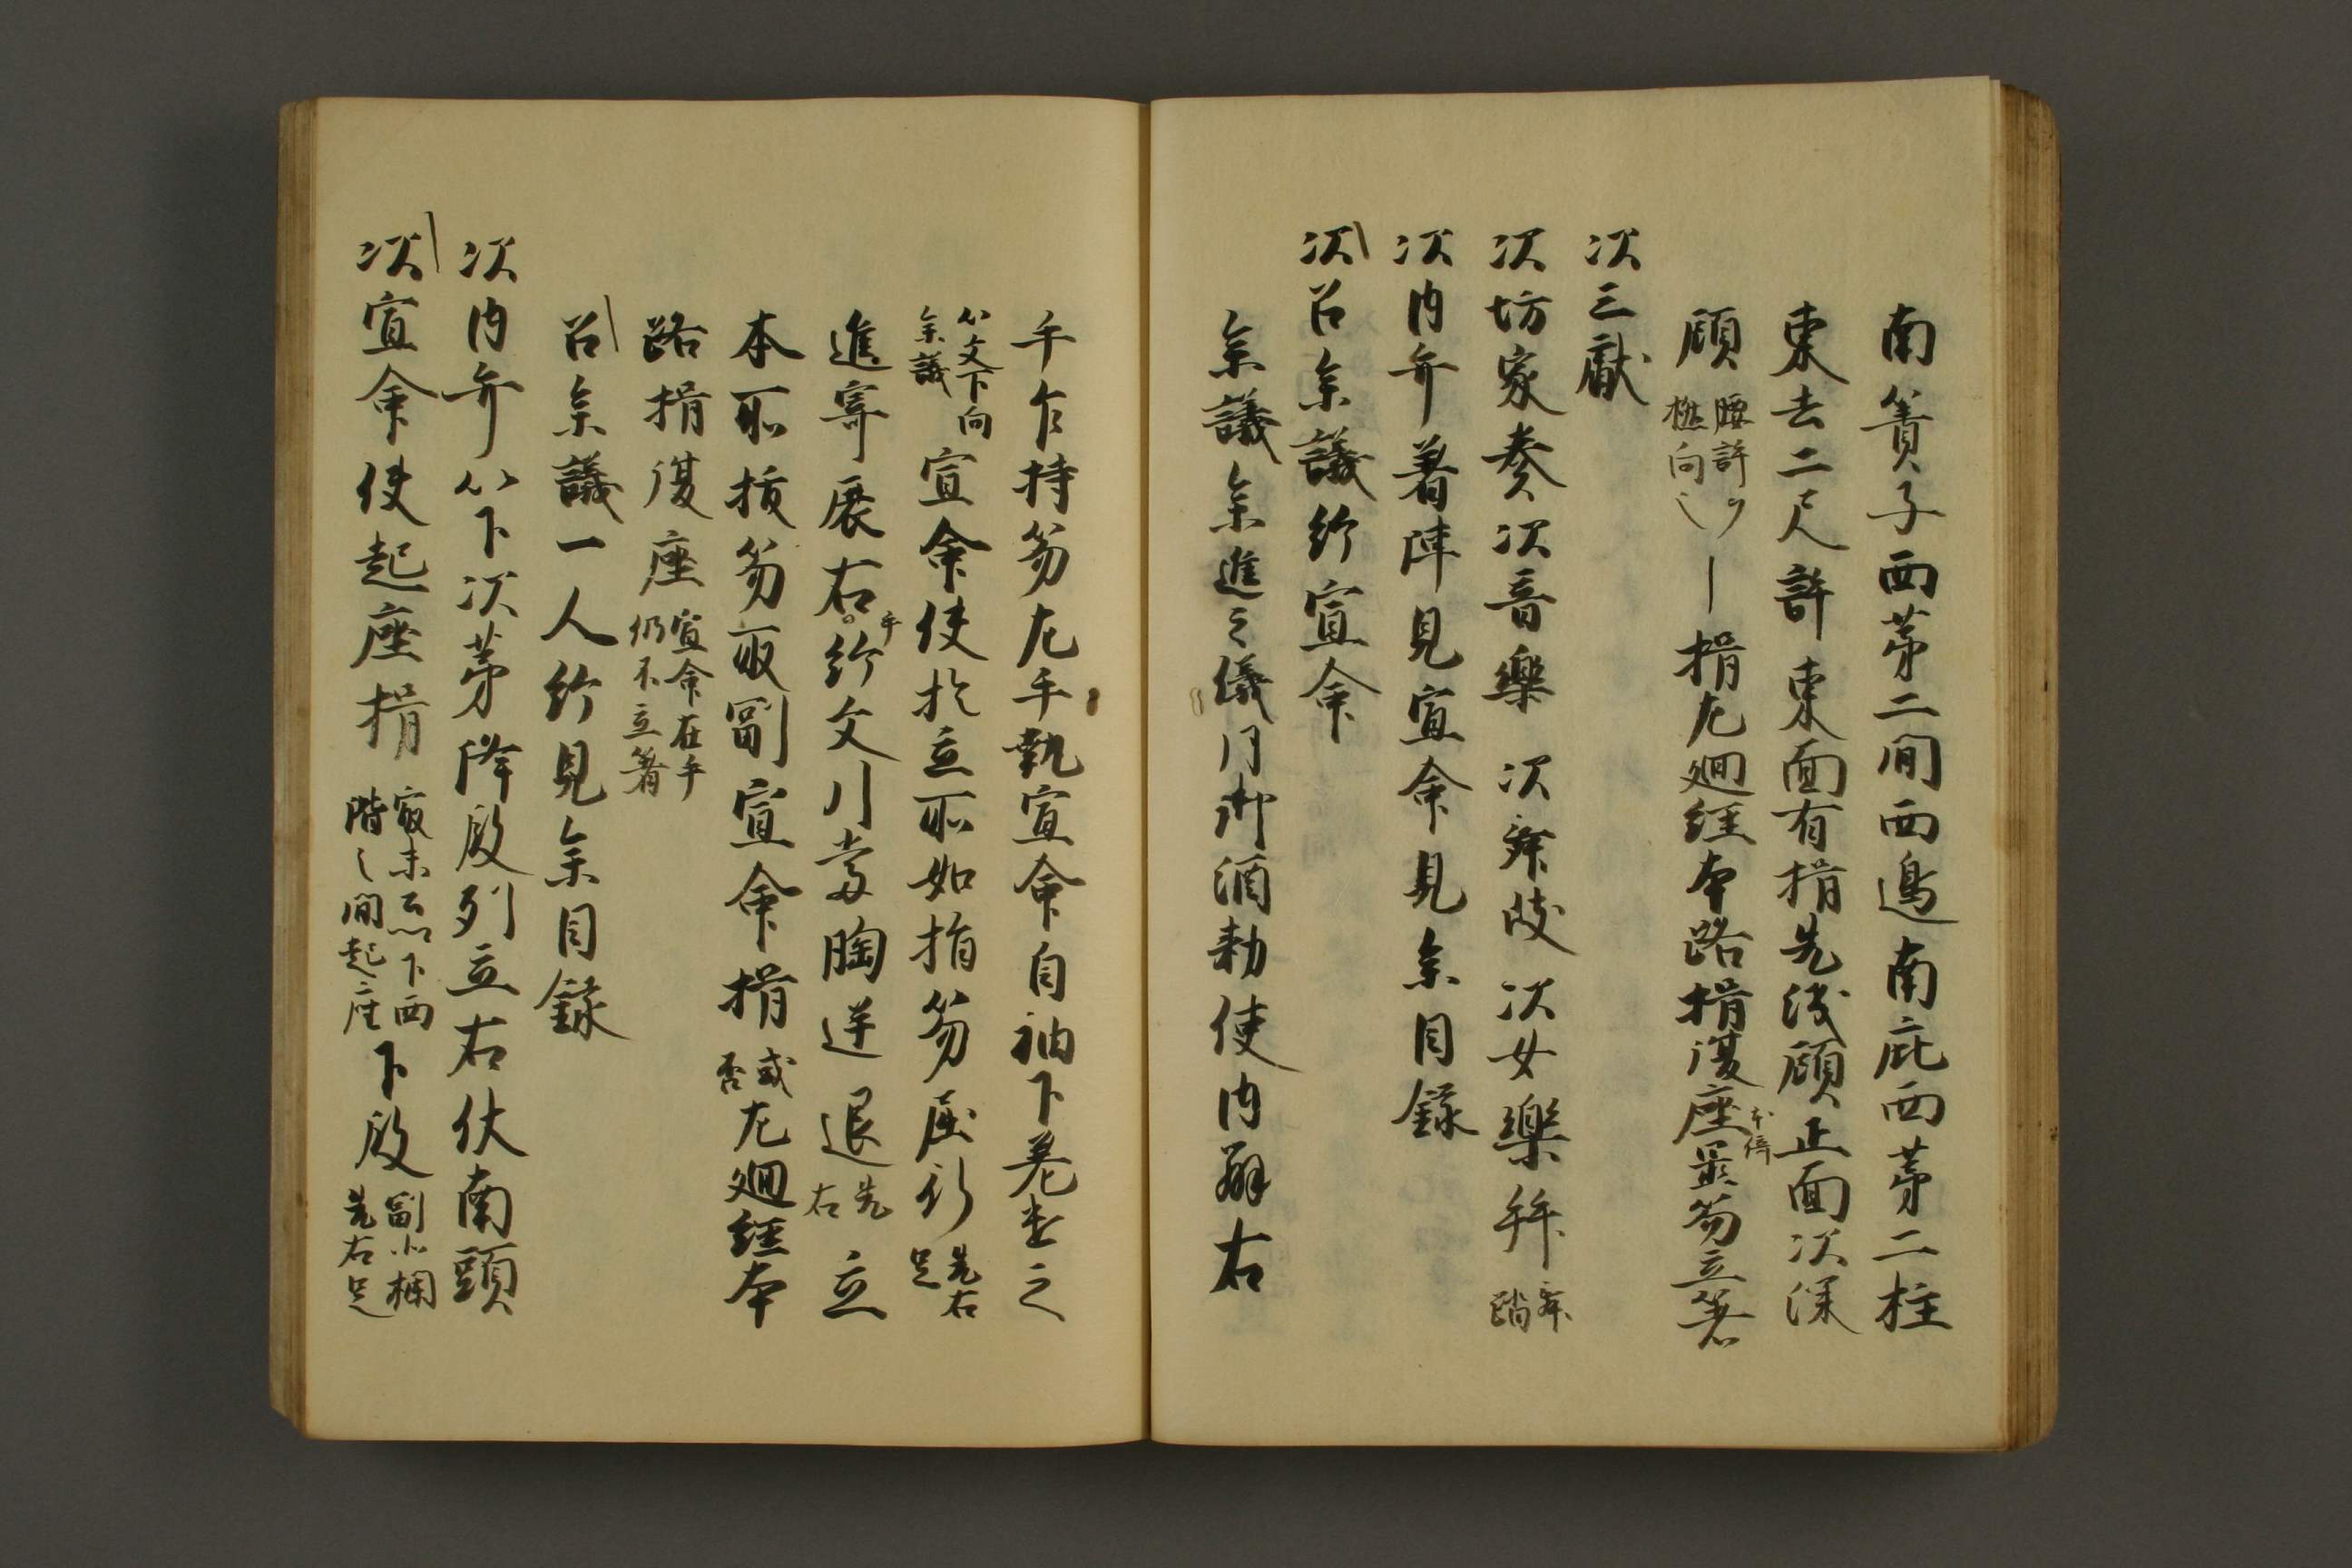 南簀子西第二間西邉南庇西第二柱
東去二尺許東面有揖先浅顧正面次深
顧腰許ヲ樵向之揖左廻経本路揖復座不停置笏立箸
次三獻
次坊家奏次音樂次舞妓次女樂拜舞踏
次内弁著陣見宣命見参目録
次召参議給宣命
参議参進之儀同御酒勅使内弁右
手乍持笏左手執宣命自袖下差出之
以文下向参議宣命使於立所如揖笏屈行先右足
進寄展右手給文引當胸逆退先右立
本所拔笏取副宣命揖或否左廻経本
路揖復座宣命在手仍不立箸
召参議一人給見参目録
次内弁以下次第降殿列立右仗南頭
次宣命使起座揖最末公卿下西階之間起座下殿副小欄先右足